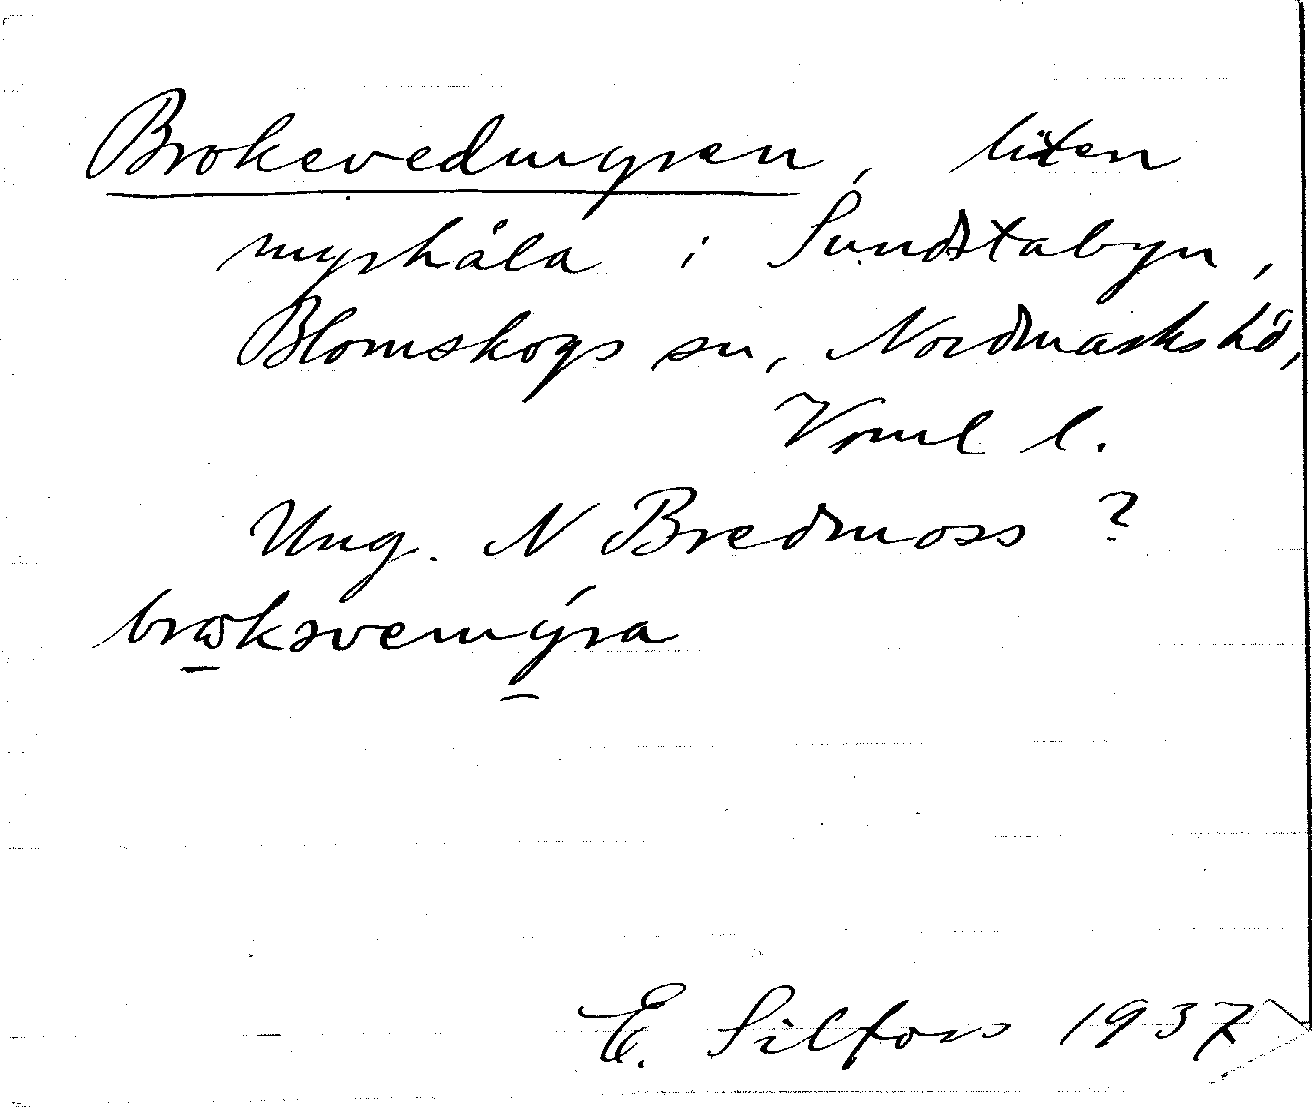 Brokevedmyren, liten
myrhåla i Sundstabyn,
Blomskogs sn, Nordmarks hd,
Vrml l.
Ung. N Bredmoss ?
E. Silfors 1937